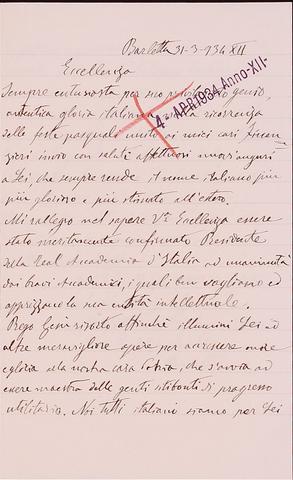 Barletta 31-3-934 XII
4 APR 1934 Anno XII
Eccellenza
Sempre entusiasta per suo genio,
autentica gloria italiana alla ricorrenza
delle feste pasquali unito ai miei cari
invio con saluti affettuosi auguri
a Lei, che sempre rende il nome italiano più
più glorioso e più stimato all'estero.
Mi rallegro nel sapere Vª Eccellenza essere
stato meritamente confirmato Presidente
della Real Accademia d'Italia ad unanimità
dai bravi Accademici, i quali ben vogliono ed
apprezzano la sua entità intellettuale.
Prego Gesù risorto affinchè illumini Lei ad
altre meravigliose opere per accrescere onore
e gloria alla nostra cara Patria, che s'avvia ad
essere maestra delle genti sitibonti di progresso
utilitario. Noi tutti italiani siamo per Lei